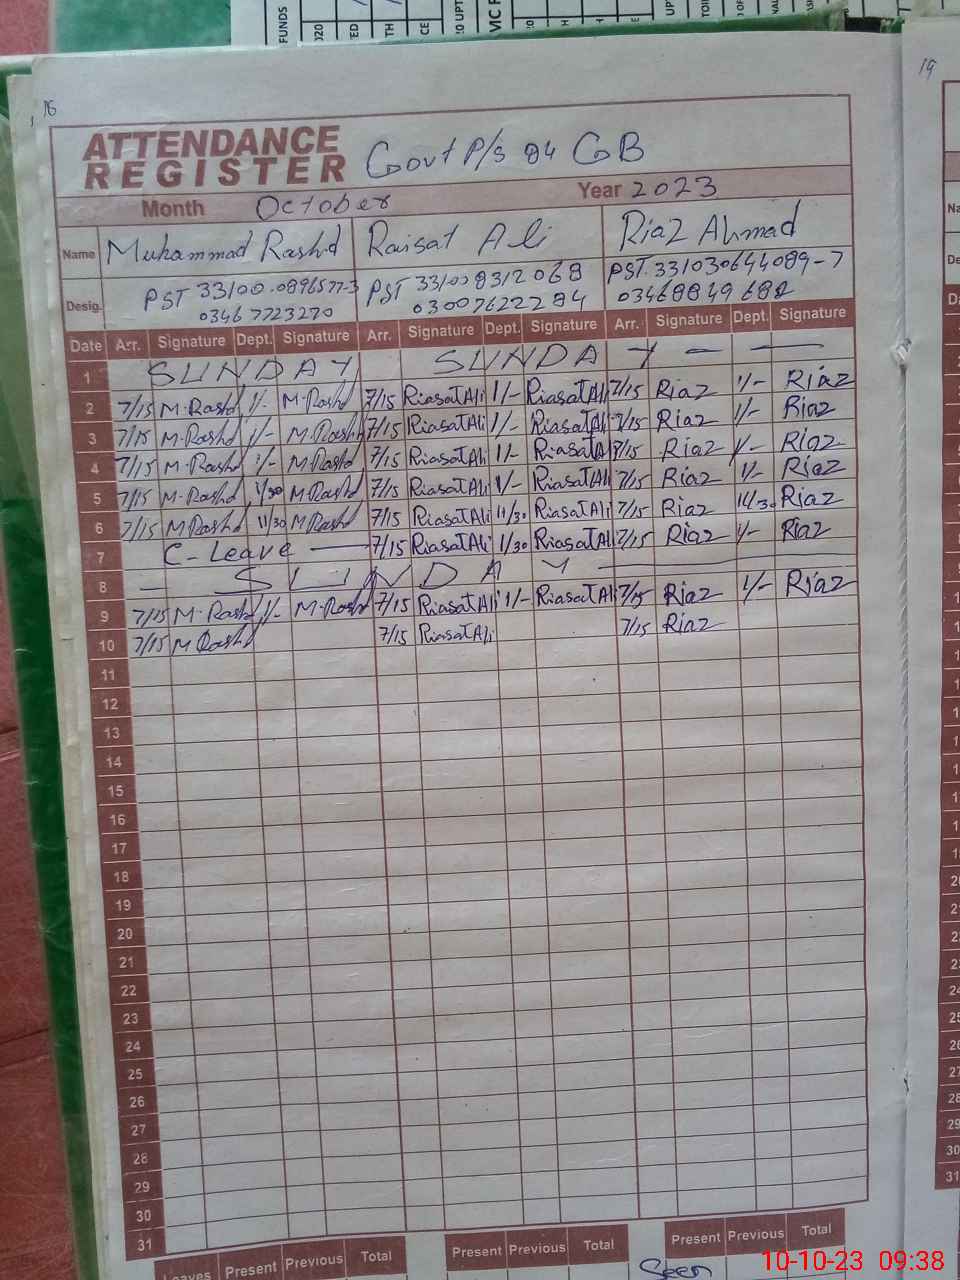 FUNDS
16
19
ATTENDANCE
REGISTER Govt P/s 84 GB
Month October Year 2023
Name Muhammad Rashid Raisat Ali Riaz Ahmad
Desig. PST 33100-0896577-3 PST 331008312068 PST. 331030644089-7
03467723270 03007622284 03468849682
Date Arr. Signature Dept. Signature Arr. Signature Dept. Signature Arr. Signature Dept. Signature
1 SUNDAY SUNDAY
2 7/15 M.Rashd 1/- M.Rashd 7/15 RiasatAli 1/- RiasatAli 7/15 Riaz 1/- Riaz
3 7/15 M.Rashd 1/- M.Rashd 7/15 RiasatAli 1/- RiasatAli 7/15 Riaz 1/- Riaz
4 7/15 M.Rashd 1/- M.Rashd 7/15 RiasatAli 1/- RiasatAli 7/15 Riaz 1/- Riaz
5 7/15 M.Rashd 1/30 M.Rashd 7/15 RiasatAli 1/- RiasatAli 7/15 Riaz 1/- Riaz
6 7/15 M.Rashd 11/30 M.Rashd 7/15 RiasatAli 11/30 RiasatAli 7/15 Riaz 11/30 Riaz
7 C-Leave 7/15 RiasatAli 1/30 RiasatAli 7/15 Riaz 1/- Riaz
8 SUNDAY
9 7/15 M.Rashd 1/- M.Rashd 7/15 RiasatAli 1/- RiasatAli 7/15 Riaz 1/- Riaz
10 7/15 M.Rashd 7/15 RiasatAli 7/15 Riaz
11
12
13
14
15
16
17
18
19
20
21
22
23
24
25
26
27
28
29
30
31
Leaves Present Previous Total Present Previous Total Present Previous Total
Seen
10-10-23 09:38